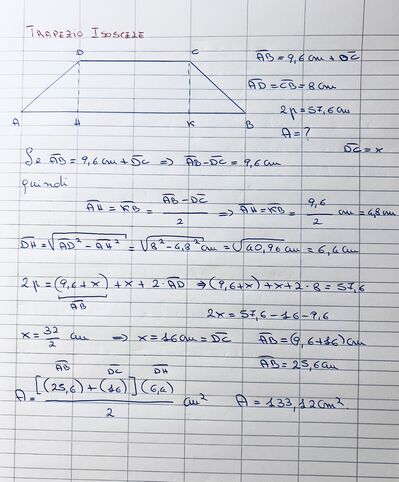 TRAPEZIO ISOSCELE
D C
A H K B
A̅B̅ = 9,6 cm + D̅C̅
A̅D̅ = C̅B̅ = 8 cm
2p = 57,6 cm
A = ?
D̅C̅ = x
Se A̅B̅ = 9,6 cm + D̅C̅ ⇒ A̅B̅ - D̅C̅ = 9,6 cm
quindi
A̅H̅ = K̅B̅ = (A̅B̅ - D̅C̅)/2 ⇒ A̅H̅ = K̅B̅ = 9,6/2 cm = 4,8 cm
D̅H̅ = √(A̅D̅² - A̅H̅²) = √(8² - 4,8²) cm = √40,96 cm = 6,4 cm
2p = (9,6 + x) + x + 2·A̅D̅ ⇒ (9,6 + x) + x + 2·8 = 57,6
A̅B̅
2x = 57,6 - 16 - 9,6
x = 32/2 cm ⇒ x = 16 cm = D̅C̅ A̅B̅ = (9,6 + 16) cm
A̅B̅ = 25,6 cm
A̅B̅ D̅C̅ D̅H̅
A = [(25,6) + (16)](6,4)/2 cm² A = 133,12 cm².